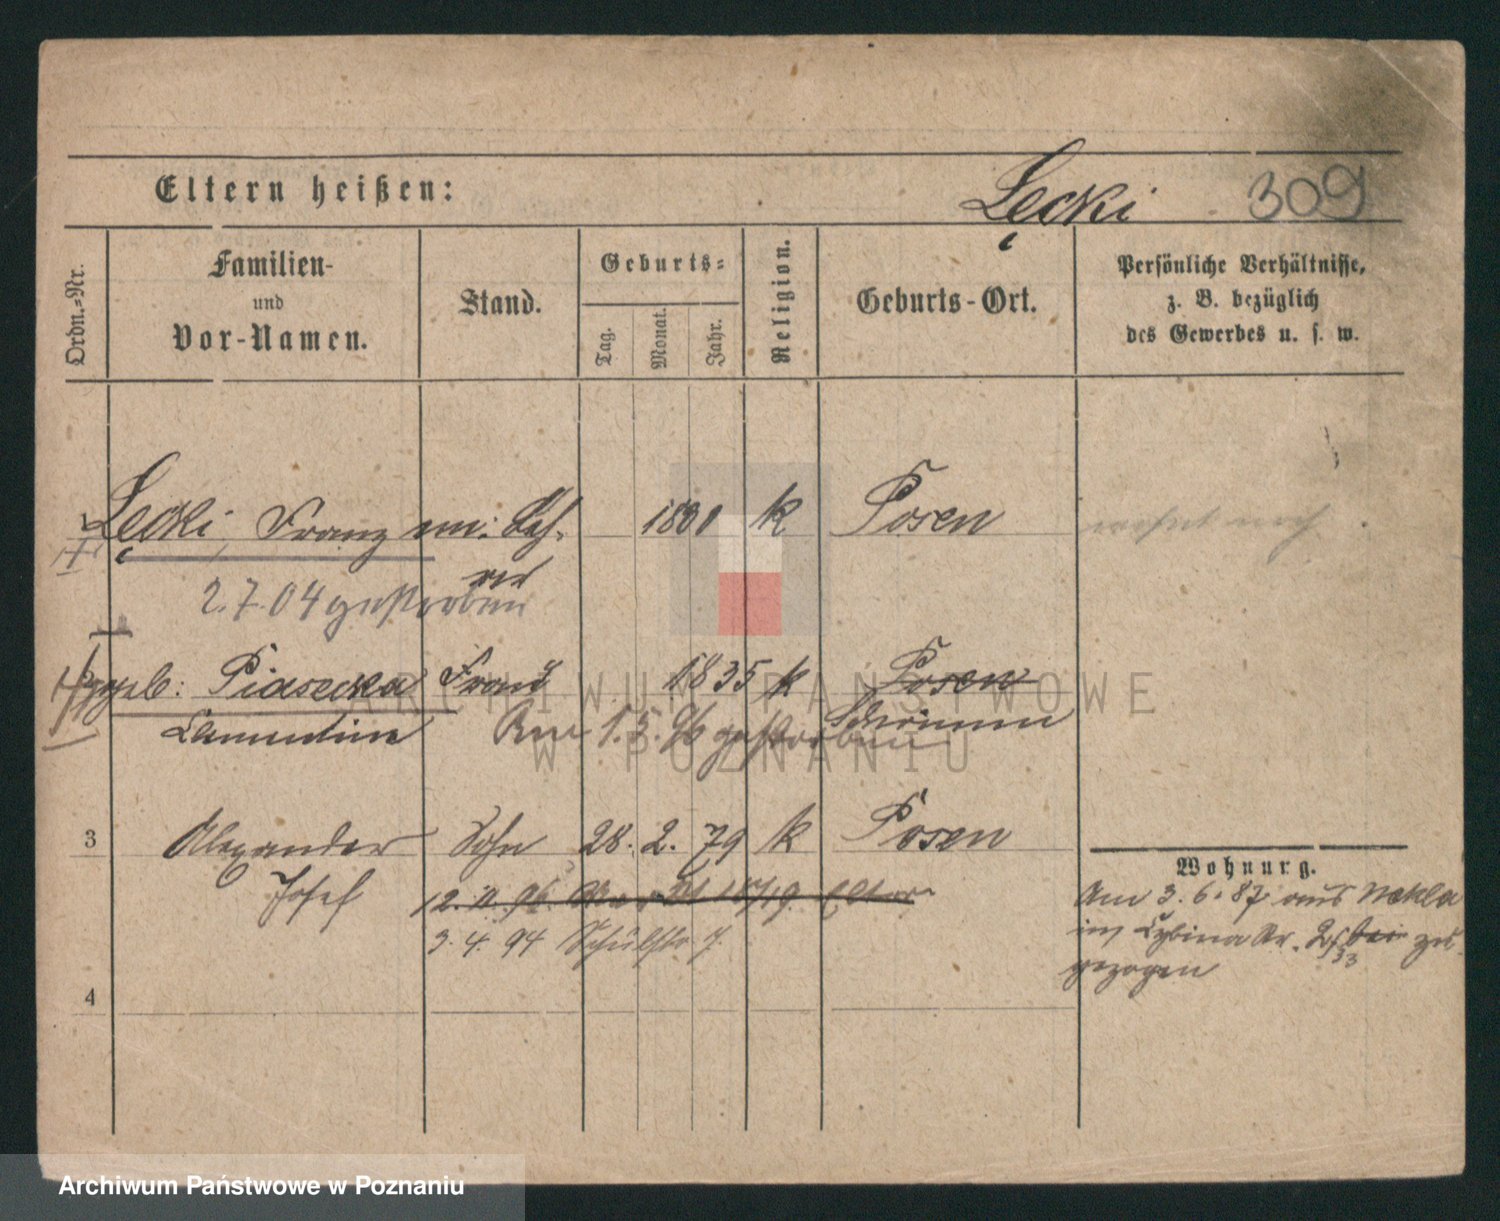 Eltern heißen:
Łęcki 309
Ordn.-Nr.
Familien-
und
Vor-Namen.
Stand.
Geburts-
Tag.
Monat.
Jahr.
Religion.
Geburts-Ort.
Persönliche Verhältnisse,
z. B. bezüglich
des Gewerbes u. s. w.
Łęcki, Franz em. Leh- 1830 k Posen wohnt noch
rer
2.7.04 gestorben
geb: Piasecka Frau 1835 k Posen
Clementine Am 1.5.96 gestorben Schrimm
3 Alexander Sohn 28. 2. 79 k Posen
Josef 12. 11. 96 18/19 Eltern
3. 4. 94 Schulstr 7.
4
Wohnung.
Am 3. 6. 87 aus Nekla
in Cybina Nr. 2 bei zu-
33
gezogen
ARCHIWUM PAŃSTWOWE
W POZNANIU
Archiwum Państwowe w Poznaniu